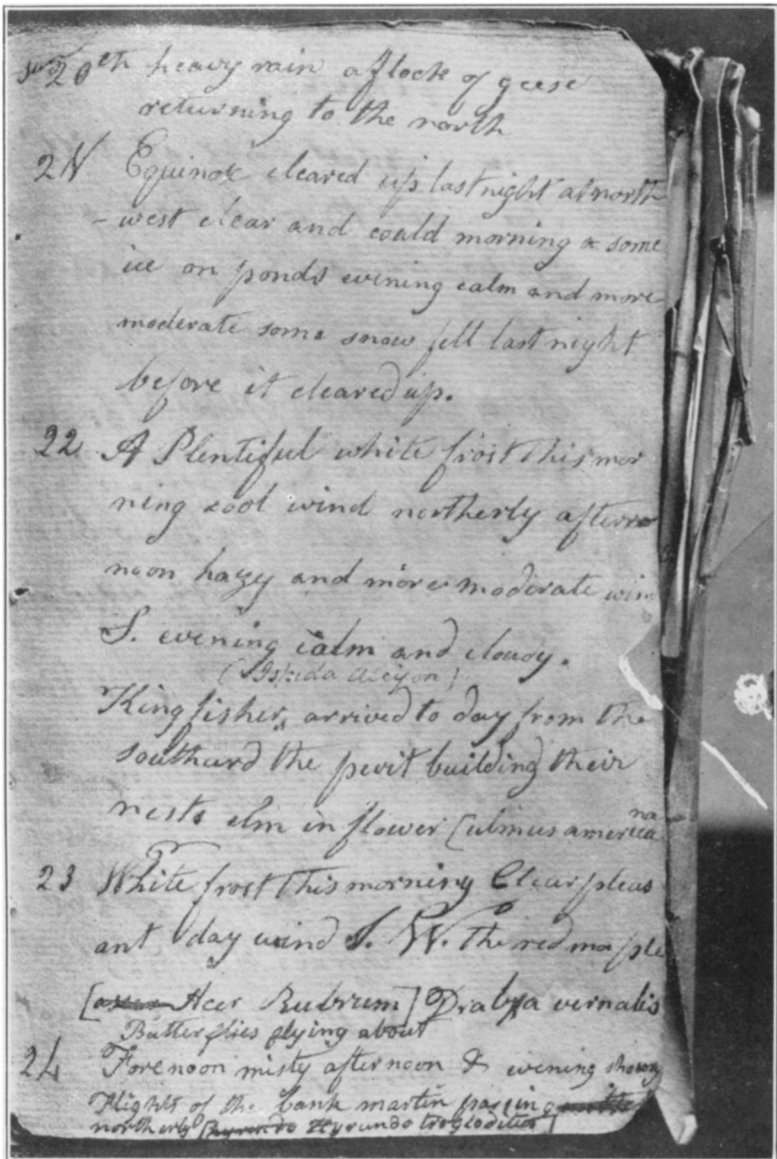 20th heavy rain a flock of geese
returning to the north
21 Equinox cleared up last night at north
-west clear and could morning & some
ice on ponds evening calm and more
moderate some snow fell last night
before it cleared up.
22 A Plentiful white frost this mor
ning cool wind northerly after
noon hazy and more moderate win
S. evening calm and cloudy.
(Ispida alcyon)
Kingfisher, arrived to day from the
southard the pevit building their
nests elm in flower [ulmus americana
23 White frost this morning Clear pleas
ant day wind S. W. the red maple
[Acer Rubrum] Draba vernalis
Butterflies flying about
24 Forenoon misty afternoon & evening showry
Flights of the bank martin passing
northerly Hyrundo